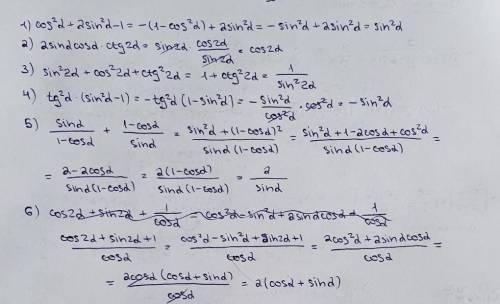 1) cos²α + 2sin²α - 1 = -(1 - cos²α) + 2sin²α = -sin²α + 2sin²α = sin²α
2) 2sinαcosα · ctg2α = sin2α · cos2α/sin2α = cos2α
3) sin²2α + cos²2α + ctg²2α = 1 + ctg²2α = 1/sin²2α
4) tg²α · (sin²α - 1) = -tg²α(1 - sin²α) = -sin²α/cos²α · cos²α = -sin²α
5) sinα/(1-cosα) + (1-cosα)/sinα = (sin²α + (1-cosα)²)/(sinα(1-cosα)) = (sin²α + 1 - 2cosα + cos²α)/(sinα(1-cosα)) =
= (2-2cosα)/(sinα(1-cosα)) = 2(1-cosα)/(sinα(1-cosα)) = 2/sinα
6) cos2α + sin2α + 1/cosα = cos²α - sin²α + 2sinαcosα + 1/cosα
(cos2α + sin2α + 1)/cosα = (cos²α - sin²α + sin2α + 1)/cosα = (2cos²α + 2sinαcosα)/cosα =
= 2cosα(cosα + sinα)/cosα = 2(cosα + sinα)